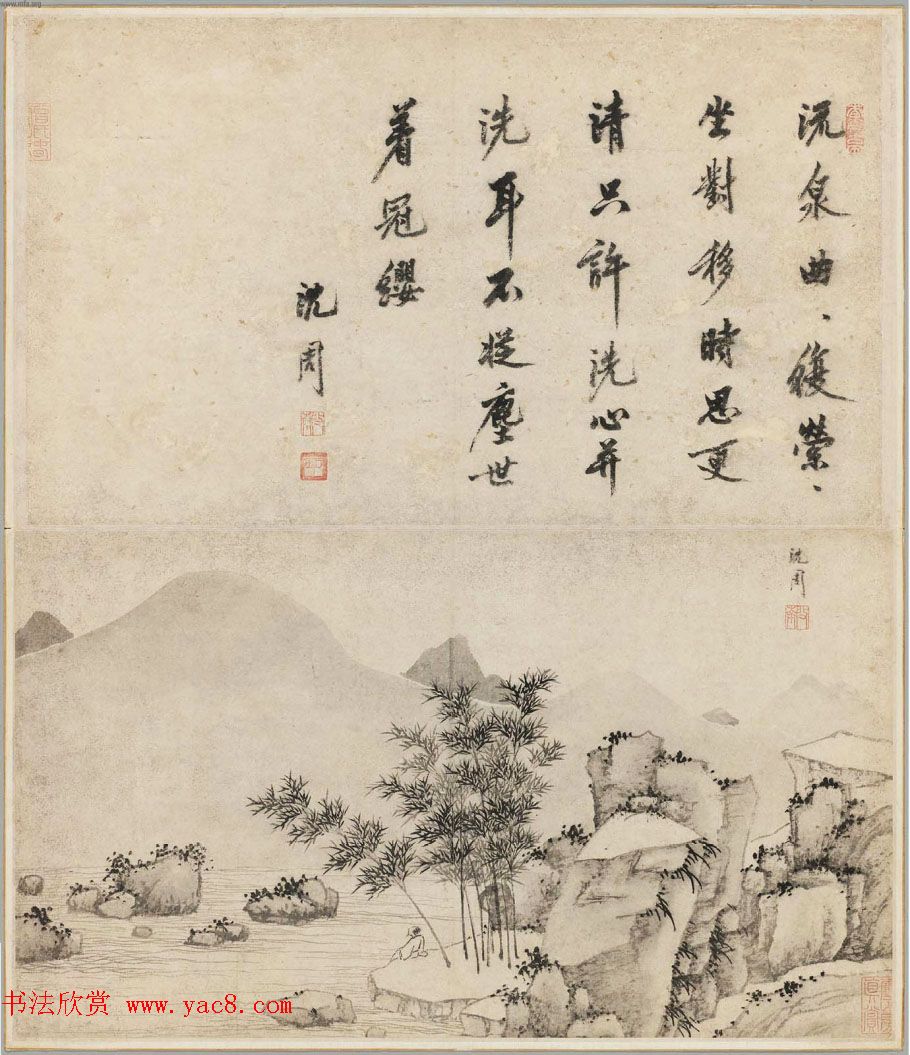 流泉曲、復縈、
坐對移時思更
清只許洗心并
洗耳不從塵世
着冠纓
沈周
沈周
书法欣赏 www.yac8.com
www.mfa.org